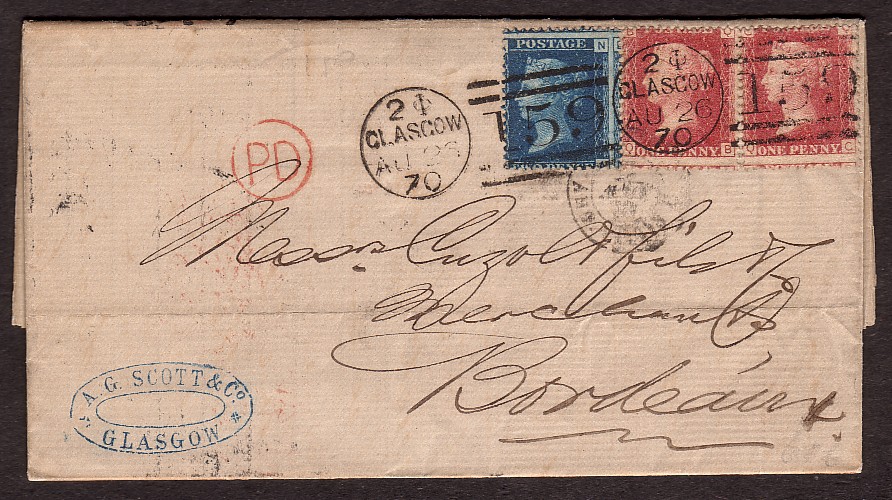 POSTAGE N
2 Φ
GLASGOW
AU 26
70
159
2 Φ
GLASGOW
AU 26
70
159
Q ONE PENNY. B
Q ONE PENNY. C
PD
Messrs Cuzol & fils & Co
Merchants
Bordeaux
A. G. SCOTT & Co.
GLASGOW